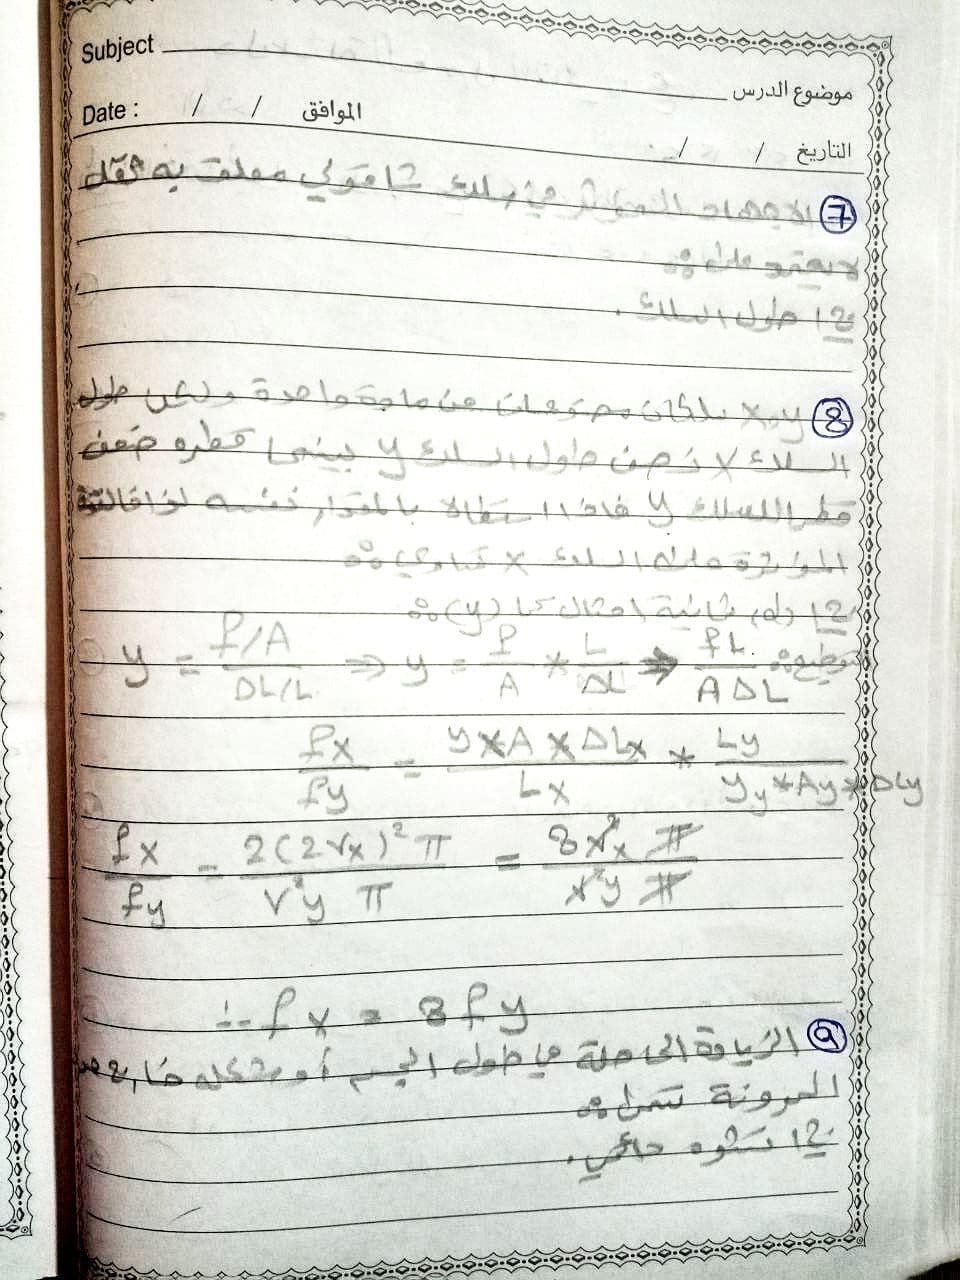 Subject
موضوع الدرس
Date : / / الموافق
التاريخ / /
7 الاجهاد المؤثر في سلك شاقولي معلق به ثقل
لا يعتمد على :
ج/ طول السلك .
8 x,y سلكان مصنوعان من مادة واحدة ولكن طول
السلك x نصف طول السلك y بينما قطره ضعف
قطر السلك y فاذا استطالا بالمقدار نفسه لذا فالقوة
المؤثرة على السلك x تساوي :
ج/ ثمانية امثال (y) :
توضيح: y = f/A / ΔL/L ⇒ y = f/A * L/ΔL ⇒ fL / A ΔL
fx/fy = y*A*ΔLx / Lx * Ly / Yy*Ay*ΔLy
fx/fy = 2(2rx)² π / r²y π = 8r²x π / r²y π
∴ fx = 8fy
9 الزيادة الحاصلة في طول الجسم أو شكله خارج
المرونة تسمى :
ج/ تشوه دائمي .